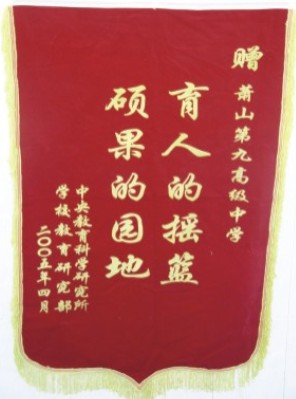 赠 萧山第九高级中学
育人的摇篮
硕果的园地
中央教育科学研究所
学校教育研究部
二〇〇五年四月